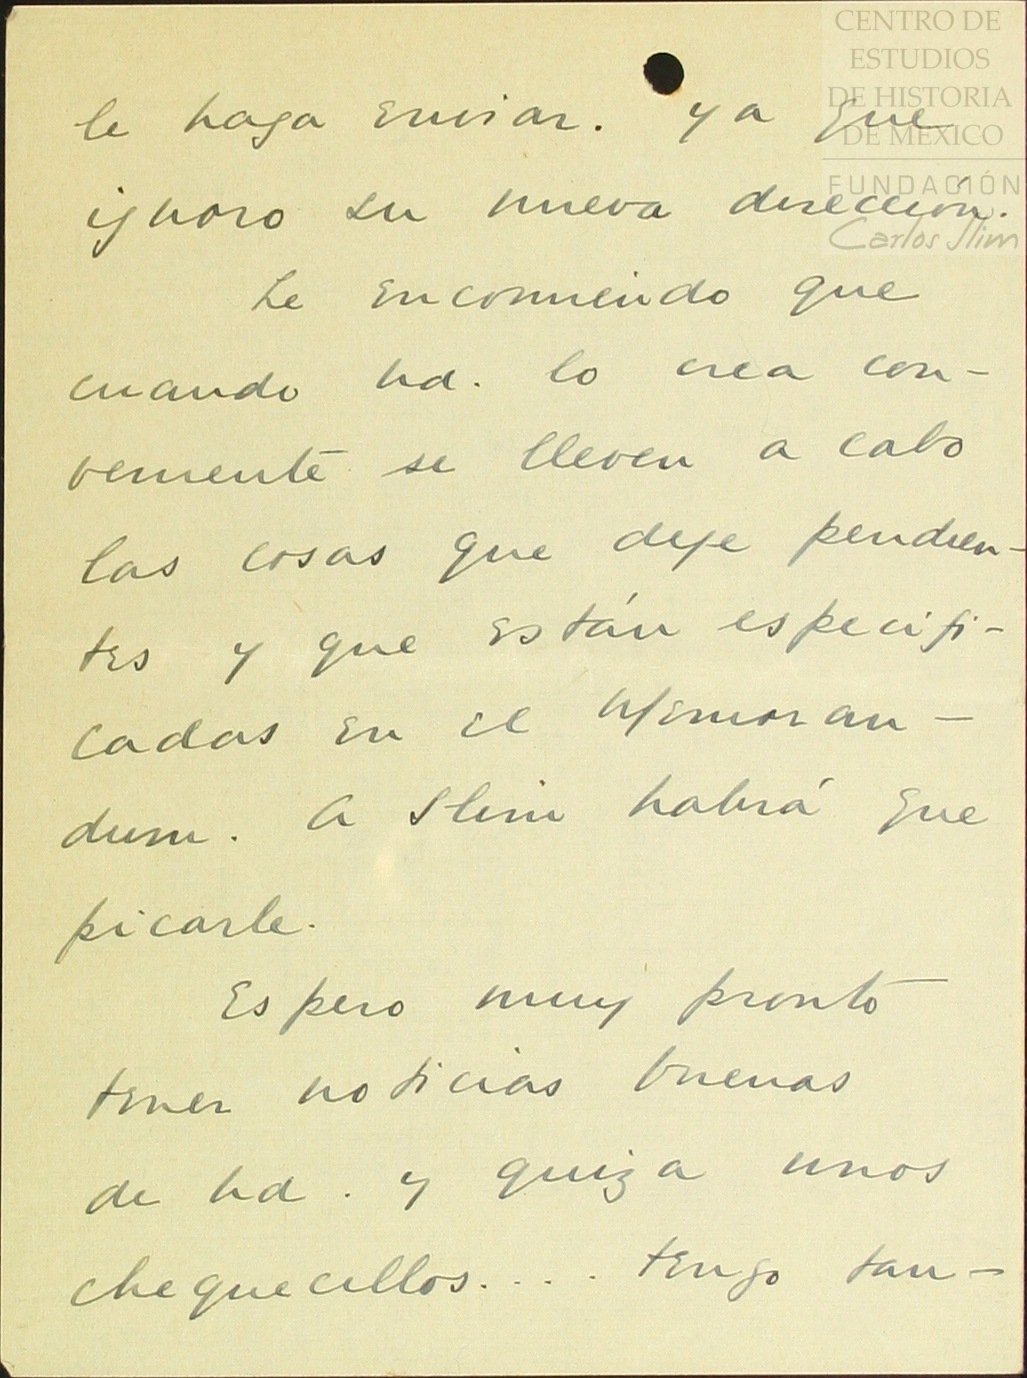 CENTRO DE
ESTUDIOS
DE HISTORIA
DE MÉXICO
FUNDACIÓN
Carlos Slim
le haga enviar. ya que
ignoro su nueva dirección.
Le encomiendo que
cuando Ud. lo crea con-
veniente se lleven a cabo
las cosas que deje pendien-
tes y que están especifi-
cadas en el Memoran-
dum. A Slim habrá que
picarle.
Espero muy pronto
tener noticias buenas
de Ud. y quiza unos
chequecillos.... tengo tan-